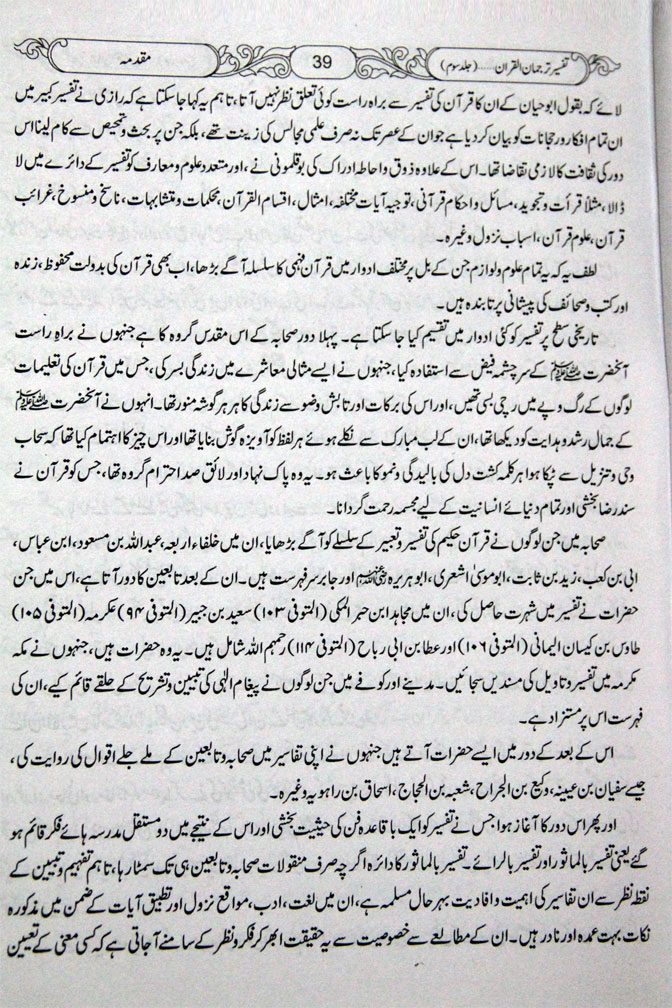 تفسیر ترجمان القرآن ...... (جلد سوم)
39
مقدمہ
لائے کہ بقول ابوحیان کے ان کا قرآن کی تفسیر سے براہ راست کوئی تعلق نظر نہیں آتا، تاہم یہ کہا جا سکتا ہے کہ رازی نے تفسیر کبیر میں
ان تمام افکار و رجحانات کو بیان کر دیا ہے جو ان کے عصر تک نہ صرف علمی مجالس کی زینت تھے، بلکہ جن پر بحث و تمحیص سے کام لینا اس
دور کی ثقافت کا لازمی تقاضا تھا۔ اس کے علاوہ ذوق و احاطہ ادراک کی بوقلمونی نے، اور متعدد علوم و معارف کو تفسیر کے دائرے میں لا
ڈالا، مثلاً قرأت و تجوید، مسائل و احکام قرآنی، توجیہ آیات مختلفہ، امثال، اقسام القرآن، محکمات و متشابہات، ناسخ و منسوخ، غرائب
قرآن، علوم قرآن، اسباب نزول وغیرہ۔
لطف یہ کہ یہ تمام علوم و لوازم جن کے بل پر مختلف ادوار میں قرآن فہمی کا سلسلہ آگے بڑھا، اب بھی قرآن کی بدولت محفوظ، زندہ
اور کتب و صحائف کی پیشانی پر تابندہ ہیں۔
تاریخی سطح پر تفسیر کو کئی ادوار میں تقسیم کیا جا سکتا ہے۔ پہلا دور صحابہ کے اس مقدس گروہ کا ہے جنہوں نے براہِ راست
آنحضرت ﷺ کے سرچشمہ فیض سے استفادہ کیا، جنہوں نے ایسے مثالی معاشرے میں زندگی بسر کی، جس میں قرآن کی تعلیمات
لوگوں کے رگ و پے میں رچی بسی تھیں، اور اس کی برکات اور تابش وضو سے زندگی کا ہر ہر گوشہ منور تھا۔ انہوں نے آنحضرت ﷺ
کے جمال رشد و ہدایت کو دیکھا تھا، ان کے لب مبارک سے نکلے ہوئے ہر لفظ کو آویزہ گوش بنایا تھا اور اس چیز کا اہتمام کیا تھا کہ سحاب
وحی و تنزیل سے ٹپکا ہوا ہر کلمہ کشت دل کی بالیدگی و نمو کا باعث ہو۔ یہ وہ پاک نہاد اور لائق صد احترام گروہ تھا، جس کو قرآن نے
سند رضا بخشی اور تمام دنیائے انسانیت کے لیے مجسمہ رحمت گردانا۔
صحابہ میں جن لوگوں نے قرآن حکیم کی تفسیر و تعبیر کے سلسلے کو آگے بڑھایا، ان میں خلفاء اربعہ، عبداللہ بن مسعود، ابن عباس،
ابی بن کعب، زید بن ثابت، ابوموسیٰ اشعری، ابوہریرہ رضی اللہ عنہم اور جابر سرفہرست ہیں۔ ان کے بعد تابعین کا دور آتا ہے، اس میں جن
حضرات نے تفسیر میں شہرت حاصل کی، ان میں مجاہد ابن جبر المکی (المتوفی ۱۰۳) سعید بن جبیر (المتوفی ۹۴) عکرمہ (المتوفی ۱۰۵)
طاوس بن کیسان الیمانی (المتوفی ۱۰۶) اور عطا بن ابی رباح (المتوفی ۱۱۴) رحمہم اللہ شامل ہیں۔ یہ وہ حضرات ہیں، جنہوں نے مکہ
مکرمہ میں تفسیر و تاویل کی مسندیں سجائیں۔ مدینے اور کوفے میں جن لوگوں نے پیغام الٰہی کی تبیین و تشریح کے حلقے قائم کیے، ان کی
فہرست اس پر مستزاد ہے۔
اس کے بعد کے دور میں ایسے حضرات آتے ہیں جنہوں نے اپنی تفاسیر میں صحابہ و تابعین کے ملے جلے اقوال کی روایت کی،
جیسے سفیان بن عیینہ، وکیع بن الجراح، شعبہ بن الحجاج، اسحاق بن راہویہ وغیرہ۔
اور پھر اس دور کا آغاز ہوا جس نے تفسیر کو ایک باقاعدہ فن کی حیثیت بخشی اور اس کے نتیجے میں دو مستقل مدرسہ ہائے فکر قائم ہو
گئے یعنی تفسیر بالماثور اور تفسیر بالرائے۔ تفسیر بالماثور کا دائرہ اگرچہ صرف منقولات صحابہ و تابعین ہی تک سمٹا رہا، تاہم تفہیم و تبیین کے
نقطہ نظر سے ان تفاسیر کی اہمیت و افادیت بہرحال مسلمہ ہے، ان میں لغت، ادب، مواقع نزول اور تطبیق آیات کے ضمن میں مذکورہ
نکات بہت عمدہ اور نادر ہیں۔ ان کے مطالعے سے خصوصیت سے یہ حقیقت ابھر کر فکر و نظر کے سامنے آ جاتی ہے کہ کسی معنی کے تعیین